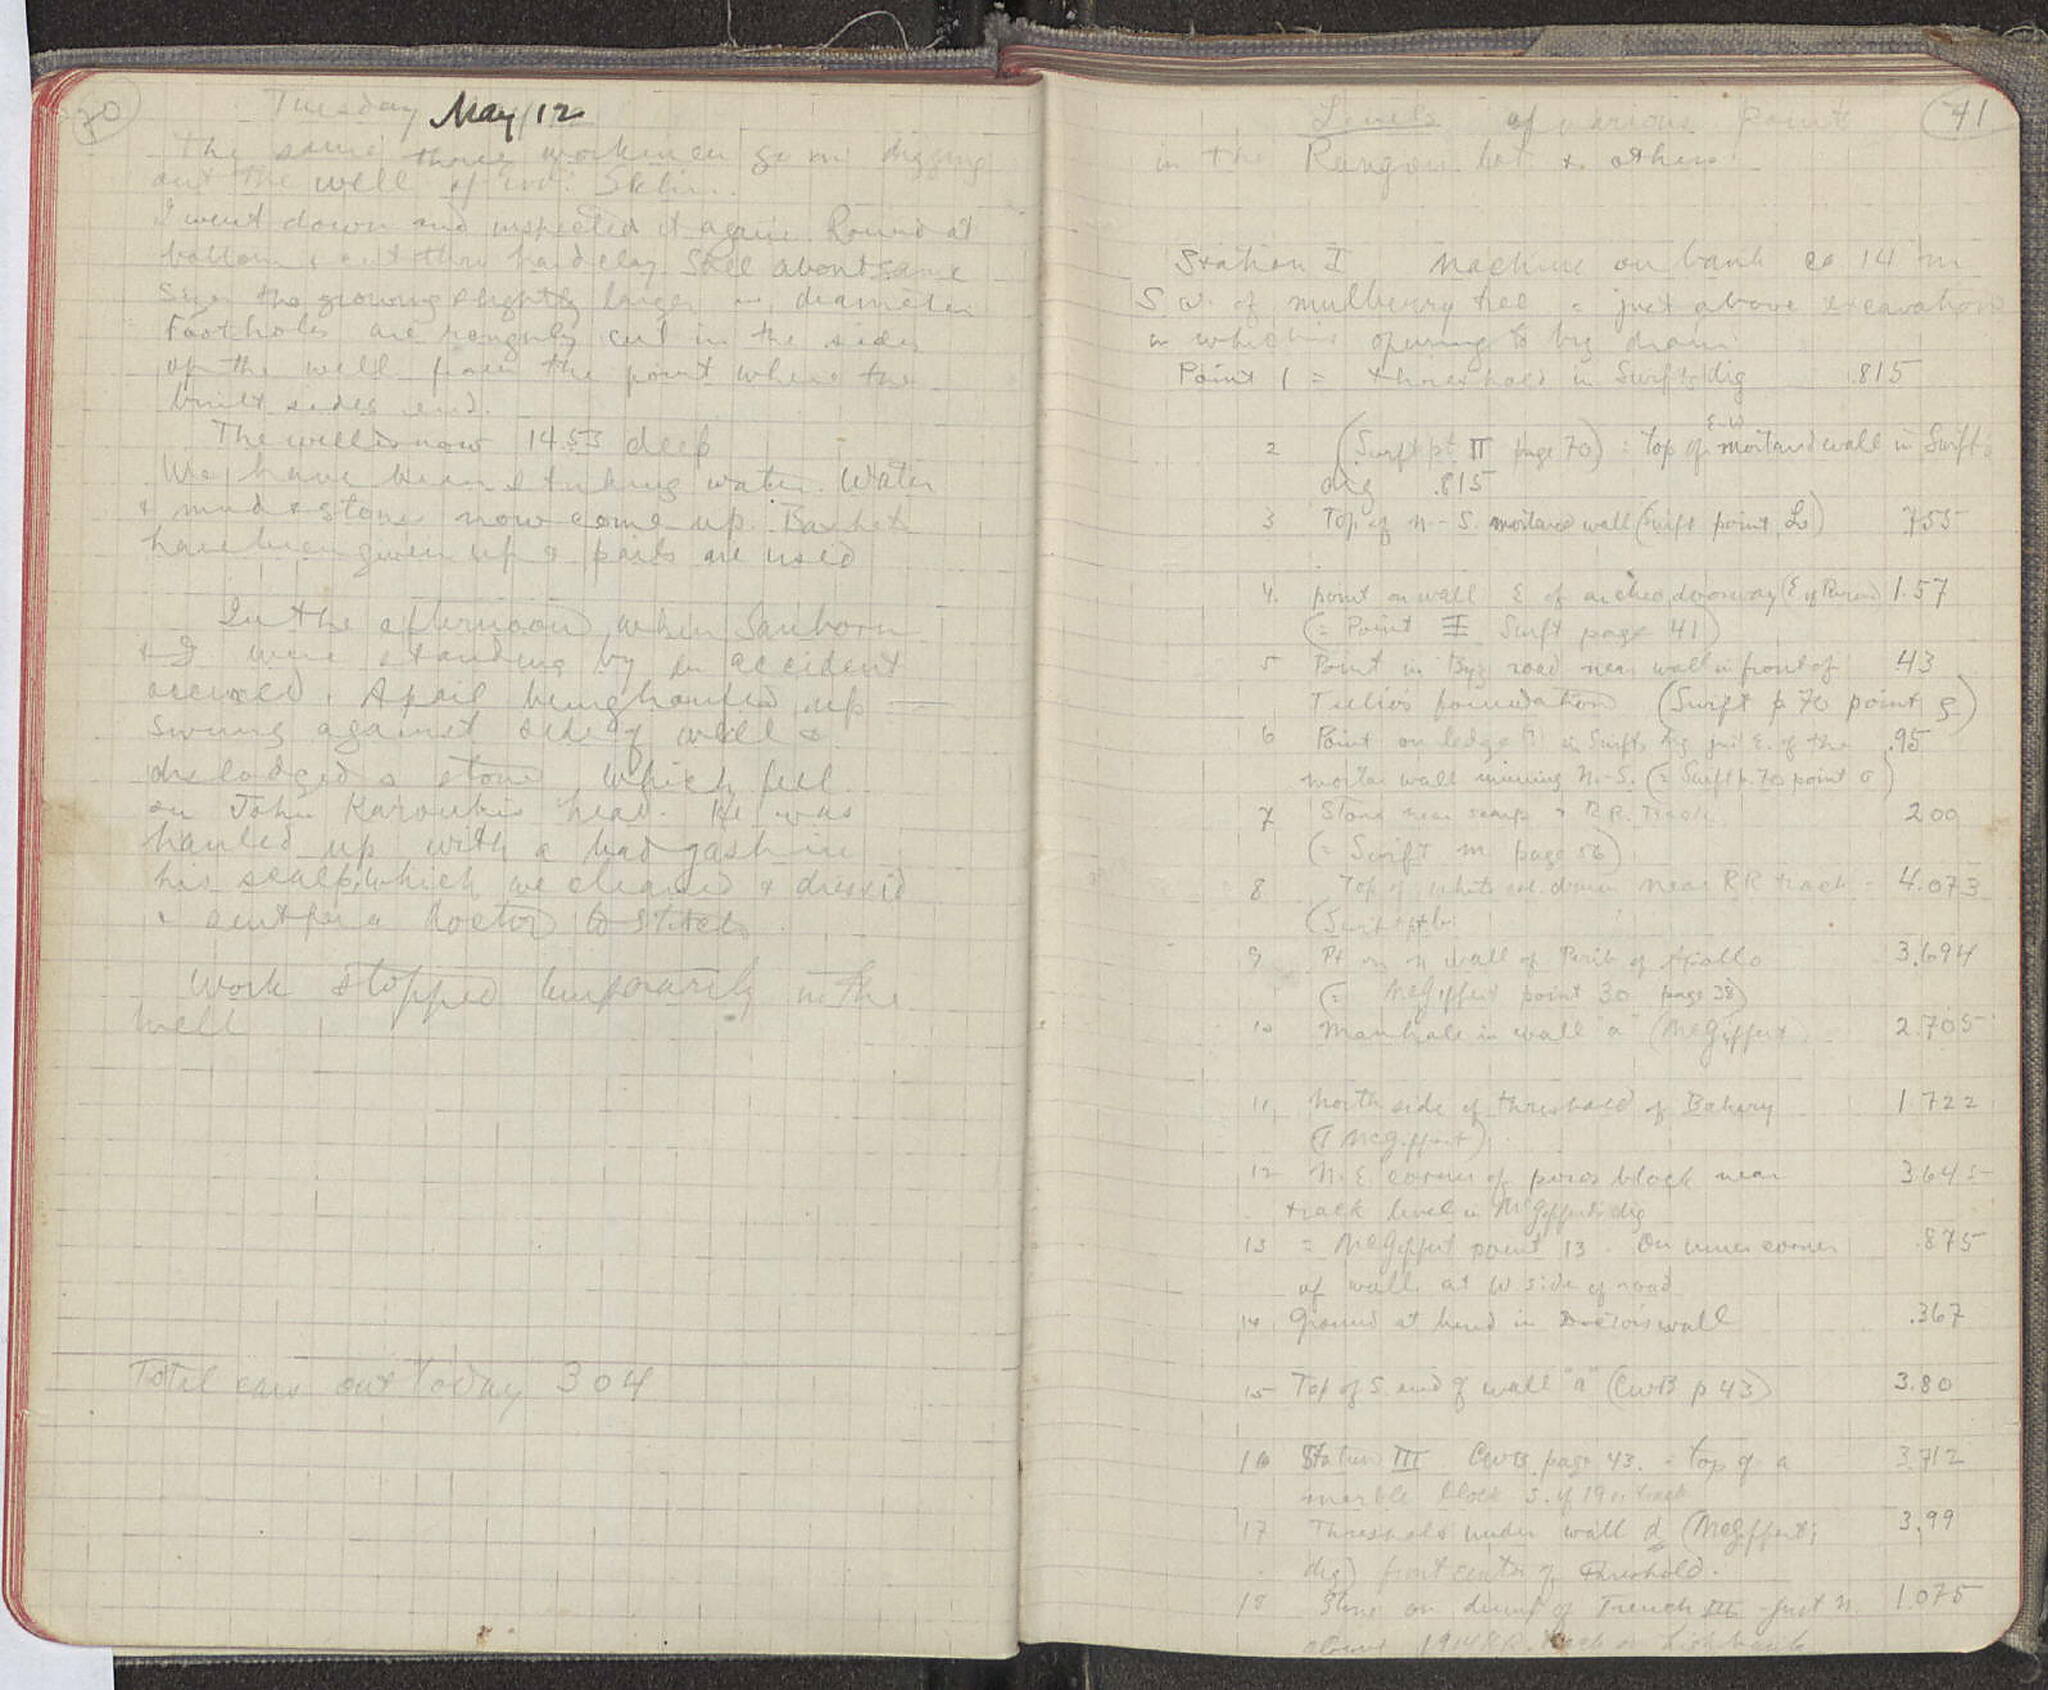 Tuesday May 12
The same three workmen go on digging
out the well of
I went down and inspected it again. Round at
bottom & cut thru hard clay. Still about same
size tho growing slightly larger in diameter
Footholes are roughly cut in the sides
of the well from the point where the
built sides end.
The well is now 14.53 deep
We have been striking water. Water
& mud & stones now come up. Baskets
have been given up & pails are used
In the afternoon when Sanborn
& I were standing by an accident
occured. A pail being hauled up —
swung against side of well &
dislodged a stone which fell
on John Karoubis head. He was
hauled up with a bad gash in
his scalp, which we cleaned & dressed
& sent for a Doctor to stitch.
Work stopped temporarily in the
well
Total cars out today 304
41
Levels of various points
in the lot & others
Station I Machine on bank ca 14 m
S.W. of mulberry tree = just above excavation
in which is opening to big drain
Point 1 = threshold in Swift's dig .815
2 (Swift pt. II page 70) = top of E-W mortared wall in Swift's
dig .815
3 Top of N-S. mortared wall (Swift point ) .755
4. point on wall E of arched doorway (E of ) 1.57
(= Point Swift page 41)
5 Point in Byz road near wall in front of 43
foundation (Swift p 70 point )
6 Point on ledge (?) in Swifts dig just E. of the .95
mortar wall running N.-S. (= Swift p. 70 point σ)
7 Stone near R.R. Track 200
(= Swift m page 56)
8 Top of white col. drum near RR track = 4.073
(Swift pt b
9 Pt on N wall of Perib of Apollo 3.694
(= McGiffert point 30 page 38)
10 Manhole in wall "a" (McGiffert) 2.705
11 North side of threshold of Bakery 1.722
(T McGiffert)
12 N.E. corner of poros block near 3.645
track level in McGiffert's dig
13 = McGiffert point 13. On inner corner .875
of wall at W side of road
14 Ground at bend in Doctor's wall .367
15 Top of S. end of wall "a" (CWB p 43) 3.80
16 Station III CWB. page 43. = top of a 3.712
marble block S. of 19 track
17 Threshold under wall d (McGiffert's 3.99
dig) front center of threshold.
18 Stone on dump of Trench III just N. 1.075
above 1914 R.R. track on